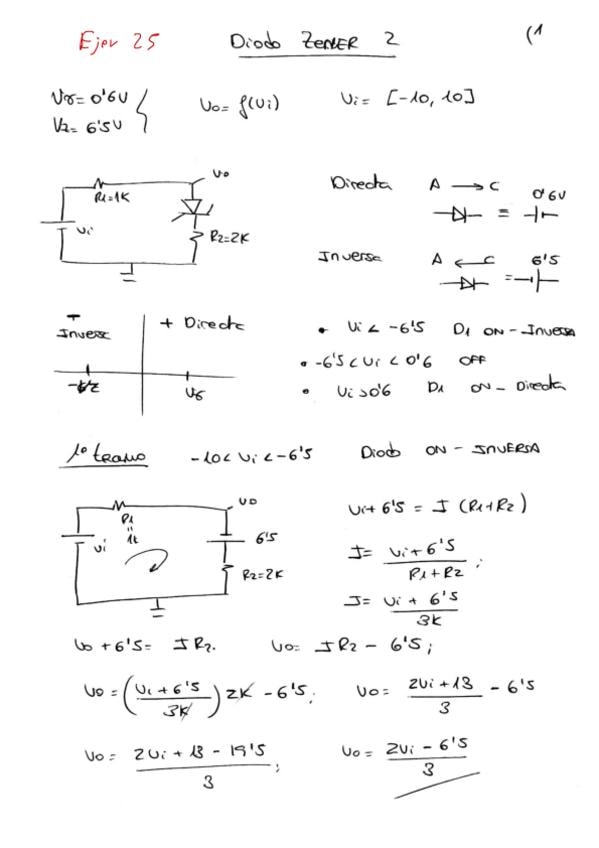 Ejer 25 Diodo ZENER 2 (1
Vγ = 0'6V
Vz = 6'5V
Vo = f(Vi) Vi = [-10, 10]
Vo
R1=1K
Vi
R2=2K
Directa A → C 0'6V
=
Inversa A ← C 6'5
=
- Inversa + Directa
-Vz Vγ
• Vi < -6'5 D1 ON - Inversa
• -6'5 < Vi < 0'6 OFF
• Vi > 0'6 D1 ON - Directa
1º tramo -10 < Vi < -6'5 Diodo ON - INVERSA
Vo
R1
=
1k
Vi
6'5
R2=2K
Vi + 6'5 = I (R1+R2)
I = Vi + 6'5 / R1+R2 ;
I = Vi + 6'5 / 3K
Vo + 6'5 = I R2. Vo = I R2 - 6'5 ;
Vo = (Vi + 6'5 / 3K) 2K - 6'5 ; Vo = 2Vi + 13 / 3 - 6'5
Vo = 2Vi + 13 - 19'5 / 3 ; Vo = 2Vi - 6'5 / 3